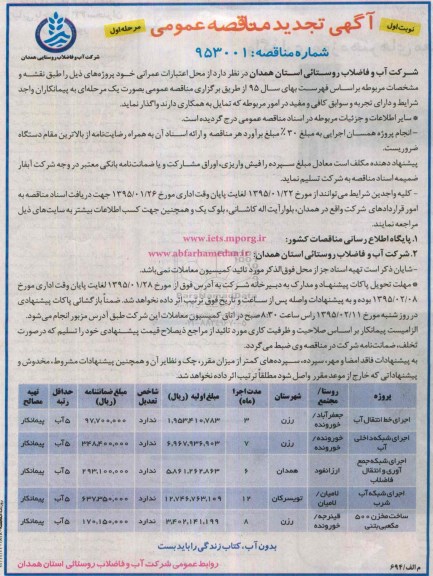 نوبت اول
آگهی تجدید مناقصه عمومی مرحله اول
شماره مناقصه: ۹۵۳۰۰۱
شرکت آب و فاضلاب روستایی همدان
شرکت آب و فاضلاب روستائی استان همدان در نظر دارد از محل اعتبارات عمرانی خود پروژه‌های ذیل را طبق نقشه و
مشخصات مربوطه براساس فهرست بهای سال ۹۵ از طریق برگزاری مناقصه عمومی بصورت یک مرحله‌ای به پیمانکاران واجد
شرایط و دارای تجربه و سوابق کافی و مفید در امور مربوطه که تمایل به همکاری دارند واگذار نماید.
* سایر اطلاعات و جزئیات مربوطه در اسناد مناقصه عمومی درج گردیده است.
- انجام پروژه همسان اجرایی به مبلغ ۳۰٪ مبلغ برآورد هر مناقصه و ارائه اسناد آن به همراه رضایت‌نامه از بالاترین مقام دستگاه
ضروریست.
پیشنهاد دهنده مکلف است معادل مبلغ سپرده را فیش واریزی، اوراق مشارکت و یا ضمانت‌نامه بانکی معتبر در وجه شرکت آبفار
ضمیمه اسناد مناقصه به شرکت تسلیم نماید.
- کلیه واجدین شرایط می‌توانند از مورخ ۱۳۹۵/۰۱/۲۲ لغایت پایان وقت اداری مورخ ۱۳۹۵/۰۱/۲۶ جهت دریافت اسناد مناقصه به
امور قراردادهای شرکت واقع در همدان، بلوار آیت اله کاشانی، بلوک یک و همچنین جهت کسب اطلاعات بیشتر به سایت‌های ذیل
مراجعه نمایند.
۱. پایگاه اطلاع رسانی مناقصات کشور: www.iets.mporg.ir
۲. شرکت آب و فاضلاب روستائی استان همدان: www.abfarhamedan.ir
-شایان ذکر است تهیه اسناد جز از محل فوق الذکر مورد تائید کمیسیون معاملات نمی‌باشد.
* مهلت تحویل پاکات پیشنهادی و مدارک به دبیرخانه شرکت به آدرس فوق از مورخ ۱۳۹۵/۰۱/۲۸ لغایت پایان وقت اداری مورخ
۱۳۹۵/۰۲/۰۸ بوده و به پیشنهادات واصله پس از ساعت و تاریخ فوق ترتیب اثر داده نخواهد شد. ضمناً بازگشائی پاکات پیشنهادی
در روز شنبه مورخ ۱۳۹۵/۰۲/۱۱ راس ساعت ۸:۳۰ صبح در اتاق کمیسیون معاملات این شرکت طبق آدرس مزبور انجام می‌شود.
الزامیست پیمانکار بر اساس صلاحیت و ظرفیت کاری مورد تائید از مراجع ذیصلاح قیمت پیشنهادی خود را تسلیم که درصورت
تخلف، ضمانت‌نامه شرکت در مناقصه وی ضبط می‌گردد.
به پیشنهادات فاقد امضا و مهر، سپرده، سپرده‌های کمتر از میزان مقرر، چک و نظایر آن و همچنین پیشنهادات مشروط، مخدوش و
پیشنهاداتی که خارج از موعد مقرر واصل شود مطلقاً ترتیب اثر داده نخواهد شد.
پروژه روستا/مجتمع شهرستان مدت اجرا (ماه) مبلغ اولیه (ریال) شاخص تعدیل مبلغ ضمانتنامه (ریال) حداقل رتبه تهیه مصالح
اجرای خط انتقال آب جعفرآباد/خورونده رزن ۳ ۱,۹۵۳,۴۱۰,۷۸۳ ندارد ۹۷,۷۰۰,۰۰۰ ۵ آب پیمانکار
اجرای شبکه داخلی آب خورونده/خورونده رزن ۷ ۶,۹۶۷,۹۳۶,۹۰۳ ندارد ۳۴۸,۴۰۰,۰۰۰ ۵ آب پیمانکار
اجرای شبکه جمع آوری و انتقال فاضلاب ارزانفود همدان ۶ ۵,۸۶۱,۲۶۲,۸۶۳ ندارد ۲۹۳,۱۰۰,۰۰۰ ۵ آب پیمانکار
اجرای شبکه آب شرب تامیان/تامیان تویسرکان ۱۲ ۱۲,۷۴۶,۷۶۳,۱۰۹ ندارد ۶۳۷,۳۵۰,۰۰۰ ۵ آب پیمانکار
ساخت مخزن ۵۰۰ مکعبی بتنی قینرجه/خورونده رزن ۸ ۳,۴۰۲,۱۴۱,۱۹۹ ندارد ۱۷۰,۱۵۰,۰۰۰ ۵ آب پیمانکار
بدون آب، کتاب زندگی را باید بست
روابط عمومی شرکت آب و فاضلاب روستائی استان همدان
م الف/۶۹۴